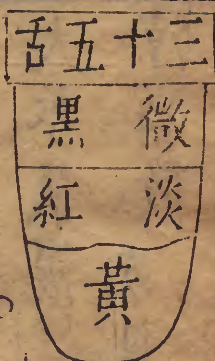 三十五舌
微黑
淡紅
黃